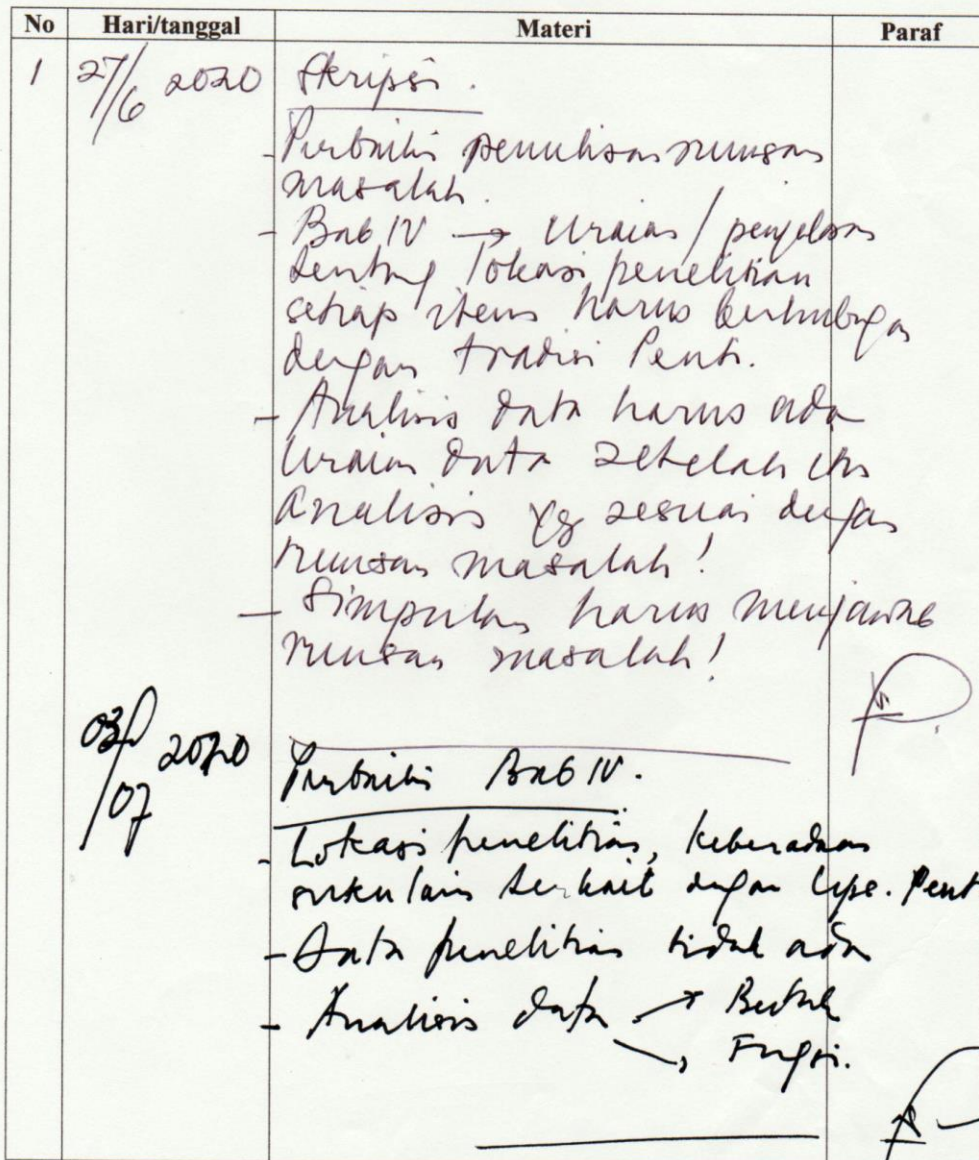 No Hari/tanggal Materi Paraf
1 27/6 2020 Skripsi.
- Perbaiki penulisan rumusan
masalah.
- Bab IV → Uraian / penjelasan
tentang lokasi penelitian
setiap item harus berhubungan
dengan tradisi Penti.
- Analisis data harus ada
Uraian data setelah itu
Analisis yg sesuai dengan
rumusan masalah!
- Simpulan harus menjawab
rumusan masalah!
03/07 2020
Perbaiki Bab IV.
- Lokasi penelitian, keberadaan
suku lain terkait dengan Upc. Pent
- Data penelitian tidak ada
- Analisis data → Bentuk
→ Fungsi.